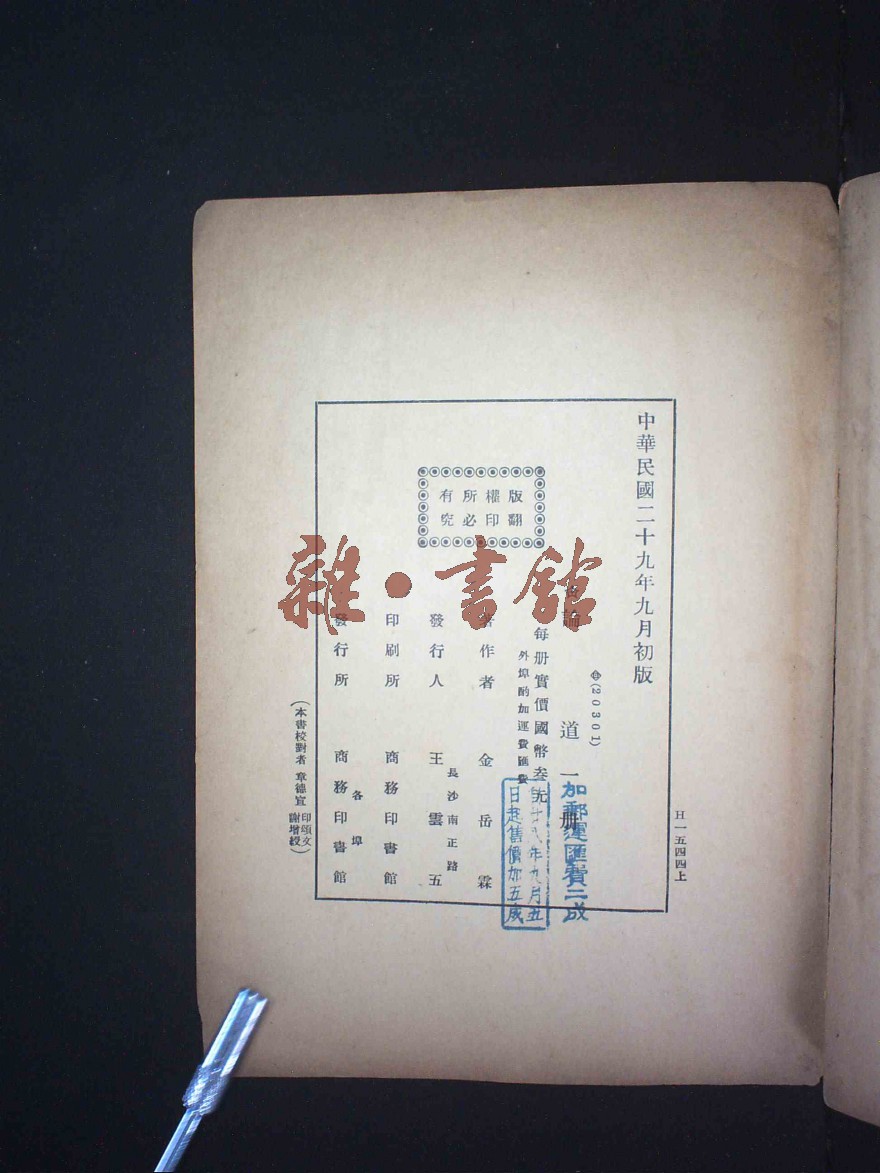 中華民國二十九年九月初版
(20301)
論 道 一 册
每册實價國幣叁元
外埠酌加運費匯費
版權所有
翻印必究
著作者 金岳霖
發行人 王雲五
長沙南正路
印刷所 商務印書館
發行所 商務印書館
各埠
(本書校對者 章德宣 印頌文 謝增綬)
H一五四四上
加郵運匯費二成
年九月五
日起售價加五成
雜·書館